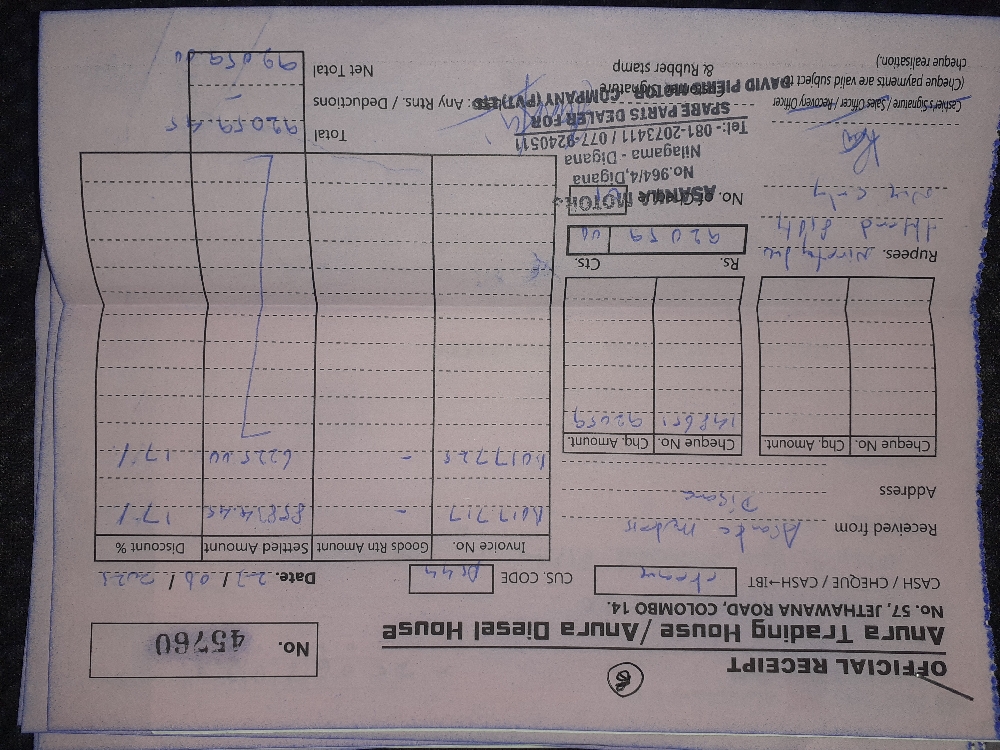 OFFICIAL RECEIPT
Anura Trading House / Anura Diesel House
No. 57, JETHAWANA ROAD, COLOMBO 14.
No. 45760
CASH / CHEQUE / CASH→IBT
CUS. CODE
Date.
Received from
Address
Cheque No. Chq. Amount. Cheque No. Chq. Amount.
148651 92059
Invoice No. Goods Rtn Amount Settled Amount Discount %
B017717 - 85834.45 17%
B017725 - 6225.00 17%
Rs. Cts.
92059 00
Rupees.
No. of Cheque
ASANKA MOTORS
No.964/4,Digana
Nilagama - Digana
Tel:- 081-2073411 / 077-9240511
SPARE PARTS DEALER FOR
DAVID PIERIS MOTOR COMPANY (PVT) LTD.
Cashier's Signature / Sales Officer / Recovery Officer
(Cheque payments are valid subject to
cheque realisation).
Customer Signature
& Rubber stamp
Total 92059.45
Any Rtns. / Deductions -
Net Total 92059.00